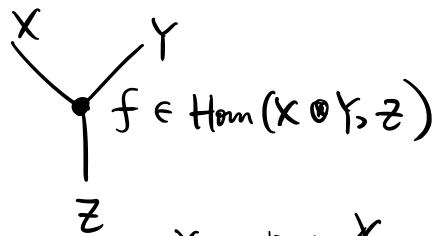 X Y
f ∈ Hom(X ⊗ Y, Z)
Z